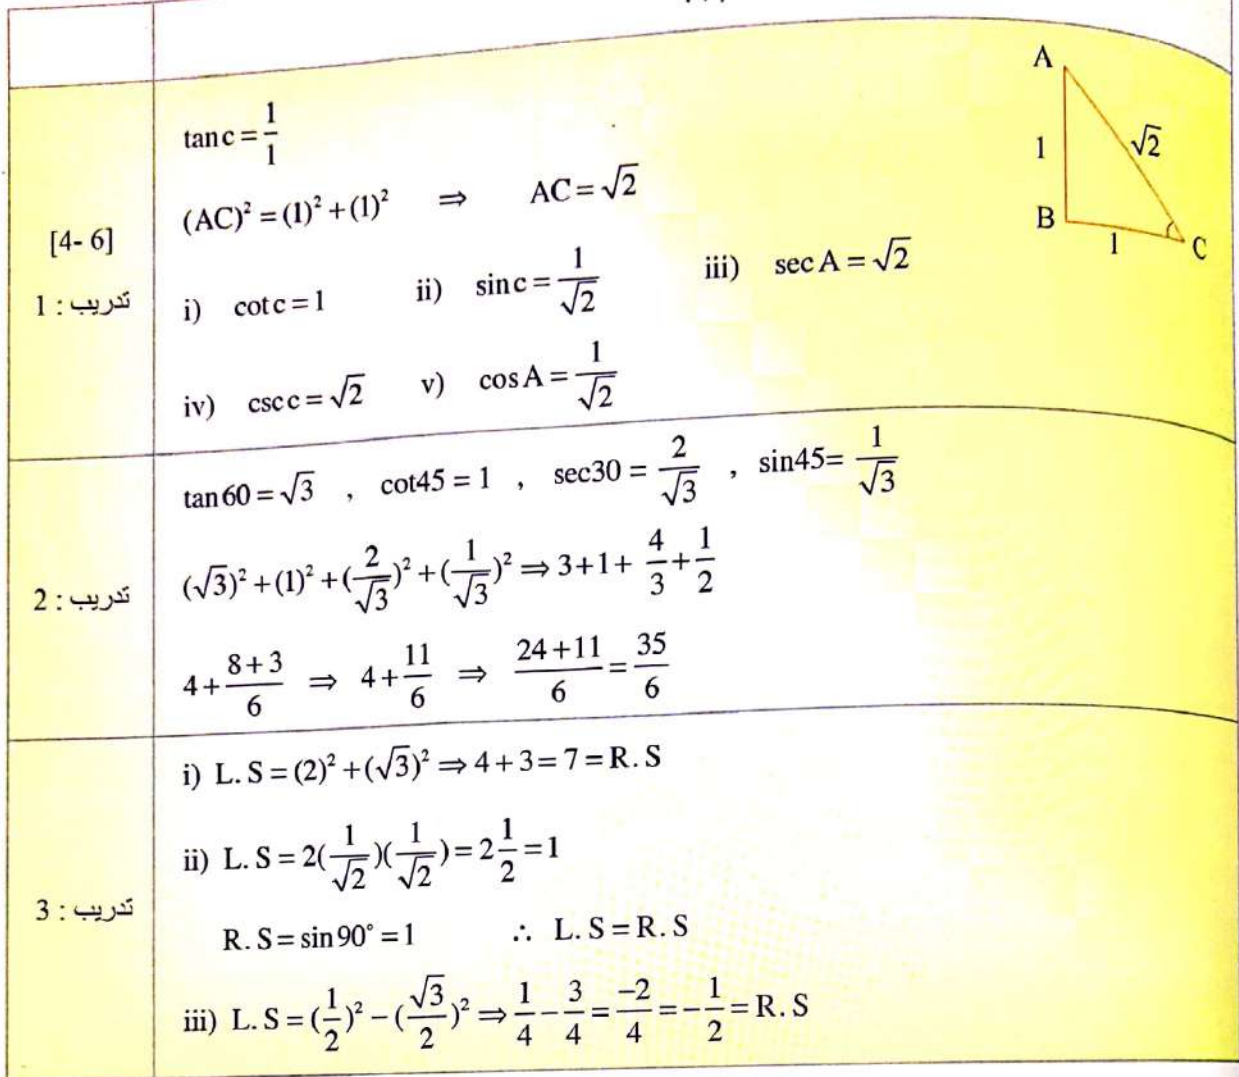 [4- 6]
تدريب : 1
tan c = 1/1
(AC)² = (1)² + (1)² ⇒ AC = √2
i) cot c = 1 ii) sin c = 1/√2 iii) sec A = √2
iv) csc c = √2 v) cos A = 1/√2
A
1 √2
B
1 C
تدريب : 2
tan 60 = √3 , cot45 = 1 , sec30 = 2/√3 , sin45= 1/√3
(√3)² + (1)² + (2/√3)² + (1/√3)² ⇒ 3+1+ 4/3 + 1/2
4 + (8+3)/6 ⇒ 4 + 11/6 ⇒ (24+11)/6 = 35/6
تدريب : 3
i) L. S = (2)² + (√3)² ⇒ 4 + 3 = 7 = R. S
ii) L. S = 2(1/√2)(1/√2) = 2 1/2 = 1
R. S = sin 90° = 1 ∴ L. S = R. S
iii) L. S = (1/2)² − (√3/2)² ⇒ 1/4 − 3/4 = −2/4 = −1/2 = R. S